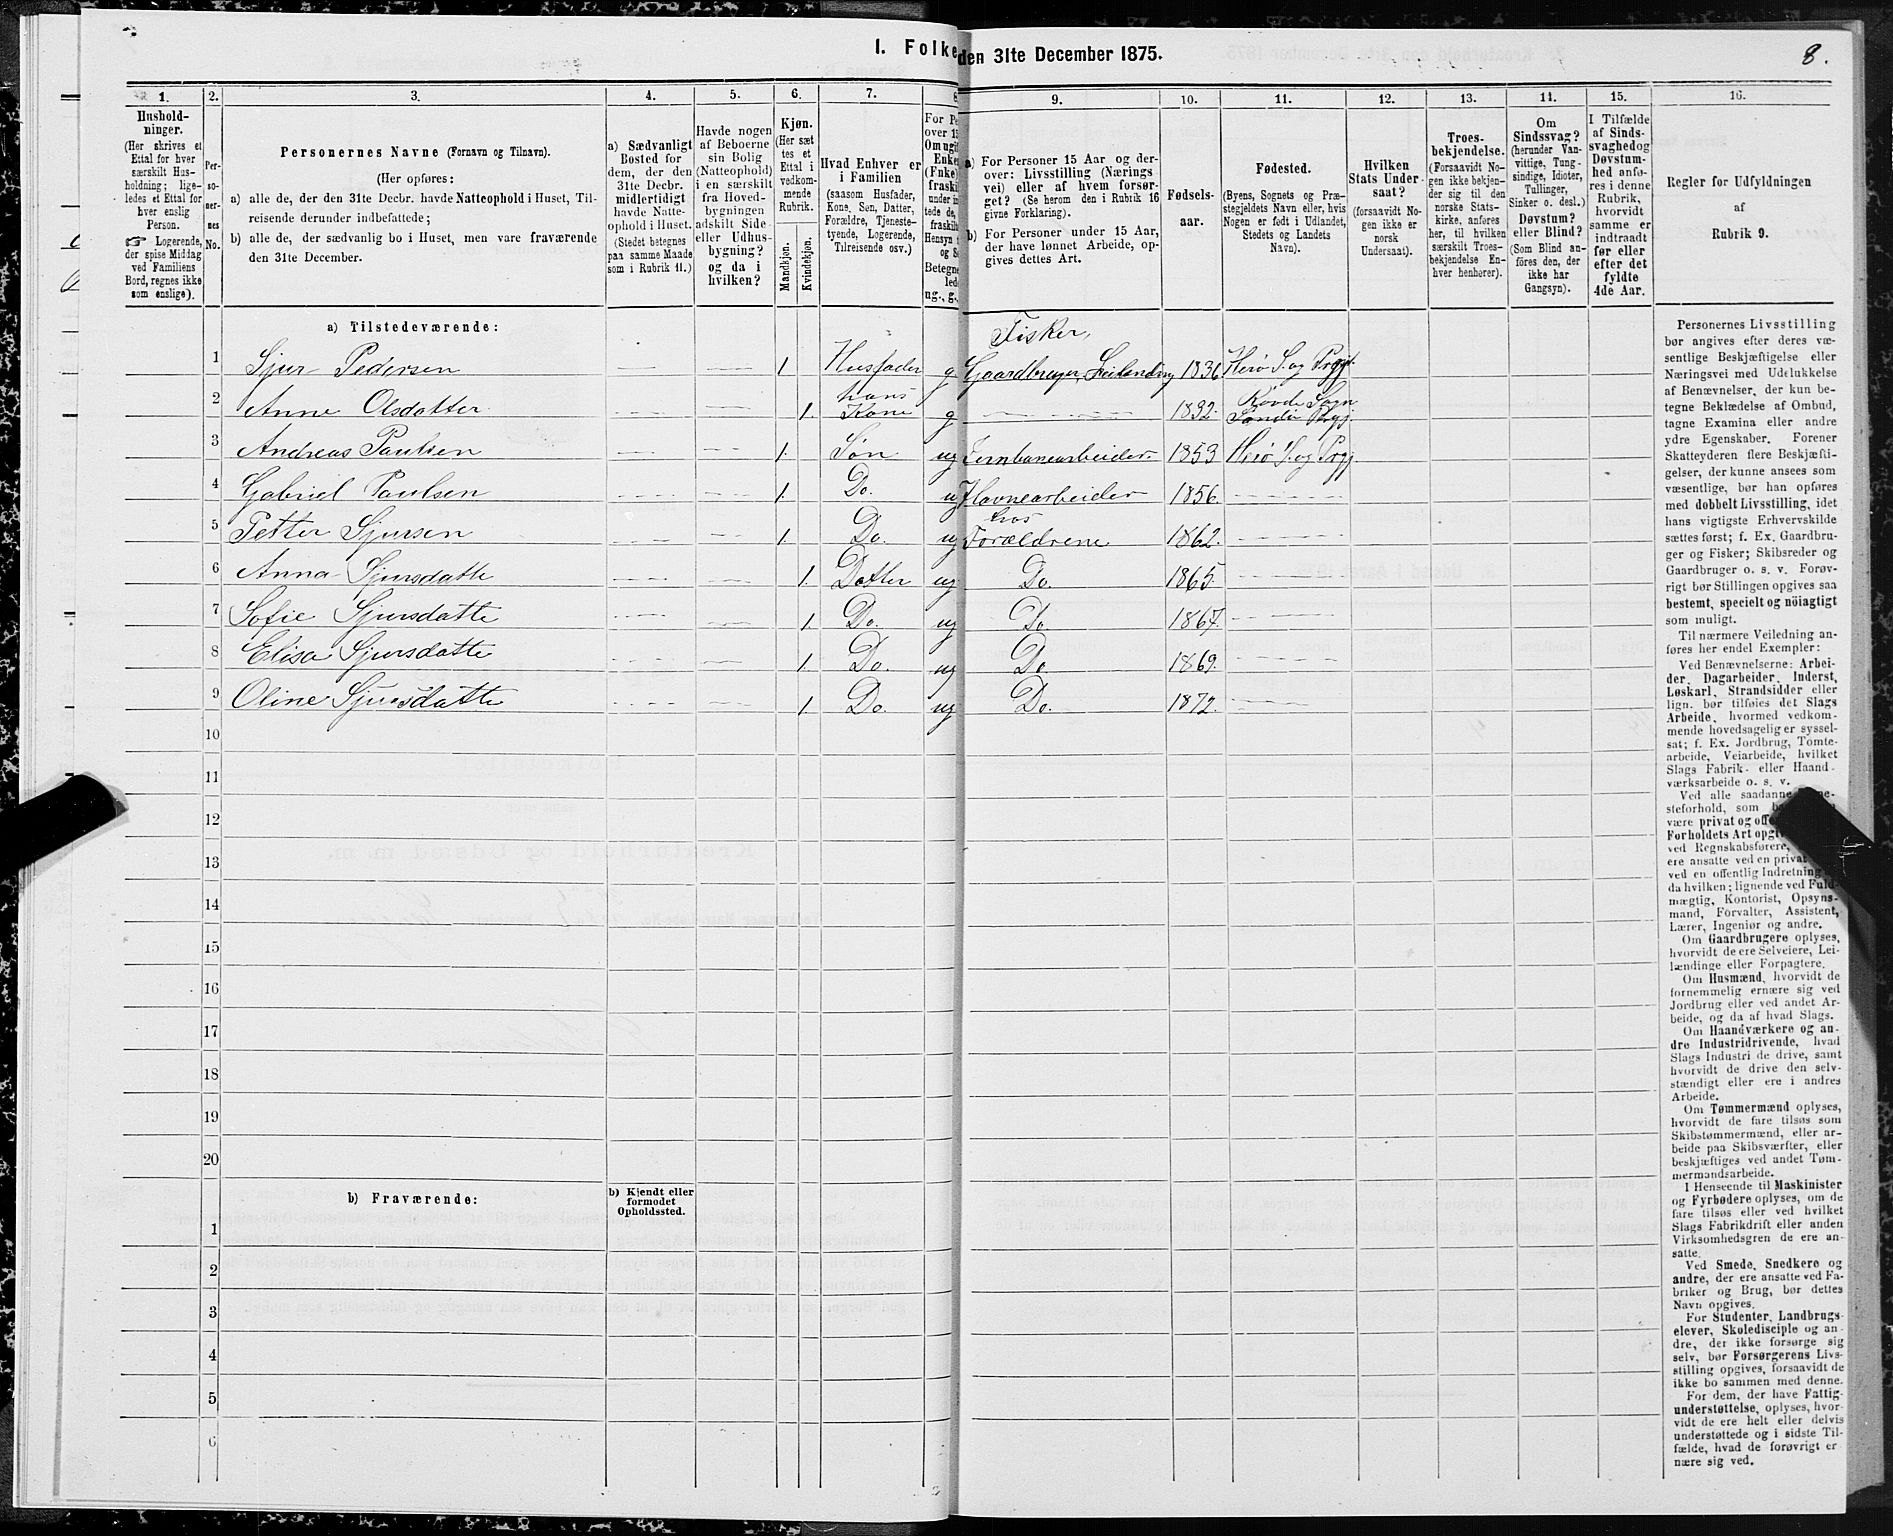 1. Folke den 31te December 1875.
8.
1.
2.
3.
4.
5.
6.
7.
8
9.
10.
11.
12.
13.
14.
15.
16.
Hushold-
ninger.
(Her skrives et
Ettal for hver
særskilt Hus-
holdning; lige-
ledes et Ettal for
hver enslig
Person.
☞ Logerende,
der spise Middag
ved Familiens
Bord, regnes ikke
som enslige).
Per-
so-
ner-
nes
No.
Personernes Navne (Fornavn og Tilnavn).
(Her opføres:
a) alle de, der den 31te Decbr. havde Natteophold i Huset, Til-
reisende derunder indbefattede;
b) alle de, der sædvanlig bo i Huset, men vare fraværende
den 31te December.
a) Sædvanligt
Bosted for
dem, der den
31te Decbr.
midlertidigt
havde Natte-
ophold i Huset.
(Stedet betegnes
paa samme Maade
som i Rubrik 11.)
Havde nogen
af Beboerne
sin Bolig
(Natteophold)
i en særskilt
fra Hoved-
bygningen
adskilt Side-
eller Udhus-
bygning?
og da i
hvilken?
Kjøn.
(Her sæt-
tes et
Ettal i
vedkom-
mende
Rubrik.
Mandkjøn.
Kvindekjøn.
Hvad Enhver er
i Familien
(saasom Husfader,
Kone, Søn, Datter,
Forældre, Tjeneste-
tyende, Logerende,
Tilreisende osv.)
For Pe
over 15
Om ugif
Enke
(Enke)
fraskil
under in
tede de,
fraskilte
Hensyn
og S
Betegne
led
ug., g.,
a) For Personer 15 Aar og der-
over: Livsstilling (Nærings-
vei) eller af hvem forsør-
get? (Se herom den i Rubrik 16
givne Forklaring).
b) For Personer under 15 Aar,
der have lønnet Arbeide, op-
gives dettes Art.
Fødsels-
aar.
Fødested.
(Byens, Sognets og Præ-
stegjeldets Navn eller, hvis
Nogen er født i Udlandet,
Stedets og Landets
Navn).
Hvilken
Stats Under-
saat?
(forsaavidt No-
gen ikke er
norsk
Undersaat).
Troes-
bekjendelse.
(Forsaavidt No-
gen ikke bekjen-
der sig til den
norske Stats-
kirke, anføres
her, til hvilken
særskilt Troes-
bekjendelse En-
hver henhører).
Om
Sindssvag?
(herunder Van-
vittige, Tung-
sindige, Idioter,
Tullinger,
Sinker o. desl.)
Døvstum?
eller Blind?
(Som Blind an-
føres den, der
ikke har
Gangsyn).
I Tilfælde
af Sinds-
svaghed og
Døvstum-
hed anfø-
res i denne
Rubrik,
hvorvidt
samme er
indtraadt
før eller
efter det
fyldte
4de Aar.
Regler for Udfyldningen
af
Rubrik 9.
a) Tilstedeværende:
Fisker,
1 Sjur Pedersen 1. Husfader g. Gaardbruger, Leilending 1836 Herö S. og Prgj.
hans
Rovde Sogn
2 Anne Olsdatter 1. Kone g 1832. Sandø Prgj.
3 Andreas Paulsen 1. Søn ug Jernbanearbeider 1853 Herö S. og Prgj.
4 Gabriel Paulsen 1. Do. ug Havnearbeider 1856.
hos
5 Petter Sjursen 1. Do. ug Forældrene 1862.
6 Anna Sjursdatte 1. Datter ug Do. 1865.
7 Sofie Sjursdatte 1. Do. ug Do. 1867.
8 Elisa Sjursdatte 1. Do. ug Do. 1869.
9 Oline Sjursdatte 1. Do. ug Do. 1872.
10
11
12
13
14
15
16
17
18
19
20
b) Fraværende:
b) Kjendt eller
formodet
Opholdssted.
1
2
3
4
5
6
Personernes Livsstilling
bør angives efter deres væ-
sentlige Beskjæftigelse eller
Næringsvei med Udelukkelse
af Benævnelser, der kun be-
tegne Beklædelse af Ombud,
tagne Examina eller andre
ydre Egenskaber. Forener
Skatteyderen flere Beskjæfti-
gelser, der kunne ansees som
væsentlige, bør han opføres
med dobbelt Livsstilling, idet
hans vigtigste Erhvervskilde
sættes først; f. Ex. Gaardbru-
ger og Fisker; Skibsreder og
Gaardbruger o. s. v. Forøv-
rigt bør Stillingen opgives saa
bestemt, specielt og nöiagtigt
som muligt.
Til nærmere Veiledning an-
føres her endel Exempler:
Ved Benævnelserne: Arbei-
der, Dagarbeider, Inderst,
Løskarl, Strandsidder eller
lign. bør tilføies det Slags
Arbeide, hvormed vedkom-
mende hovedsagelig er syssel-
sat; f. Ex. Jordbrug, Tomte-
arbeide, Veiarbeide, hvilket
Slags Fabrik- eller Haand-
værksarbeide o. s. v.
Ved alle saadanne
steforhold, som
være privat og
Forholdets Art
ved Regnskabsførere,
ere ansatte ved en privat
ved en offentlig Indretning
da hvilken; lignende ved Fuld-
mægtig, Kontorist, Opsyns-
mand, Forvalter, Assistent,
Lærer, Ingeniør og andre.
Om Gaardbrugere oplyses,
hvorvidt de ere Selveiere, Lei-
lændinge eller Forpagtere.
Om Husmænd, hvorvidt de
fornemmelig ernære sig ved
Jordbrug eller ved andet Ar-
beide, og da af hvad Slags.
Om Haandværkere og an-
dre Industridrivende, hvad
Slags Industri de drive, samt
hvorvidt de drive den selv-
stændigt eller ere i andres
Arbeide.
Om Tømmermænd oplyses,
hvorvidt de fare tilsøs som
Skibstømmermænd, eller ar-
beide paa Skibsværfter, eller
beskjæftiges ved andet Tøm-
mermandsarbeide.
I Henseende til Maskinister
og Fyrbødere oplyses, om de
fare tilsøs eller ved hvilket
Slags Fabrikdrift eller anden
Virksomhedsgren de ere an-
satte.
Ved Smede, Snedkere og
andre, der ere ansatte ved Fa-
briker og Brug, bør dettes
Navn opgives.
For Studenter, Landbrugs-
elever, Skoledisciple og an-
dre, der ikke forsørge sig
selv, bør Forsørgerens Livs-
stilling opgives, forsaavidt de
ikke bo sammen med denne.
For dem, der have Fattig-
understøttelse, oplyses, hvor-
vidt de ere helt eller delvis
understøttede og i sidste Til-
fælde, hvad de forøvrigt er-
nære sig ved.